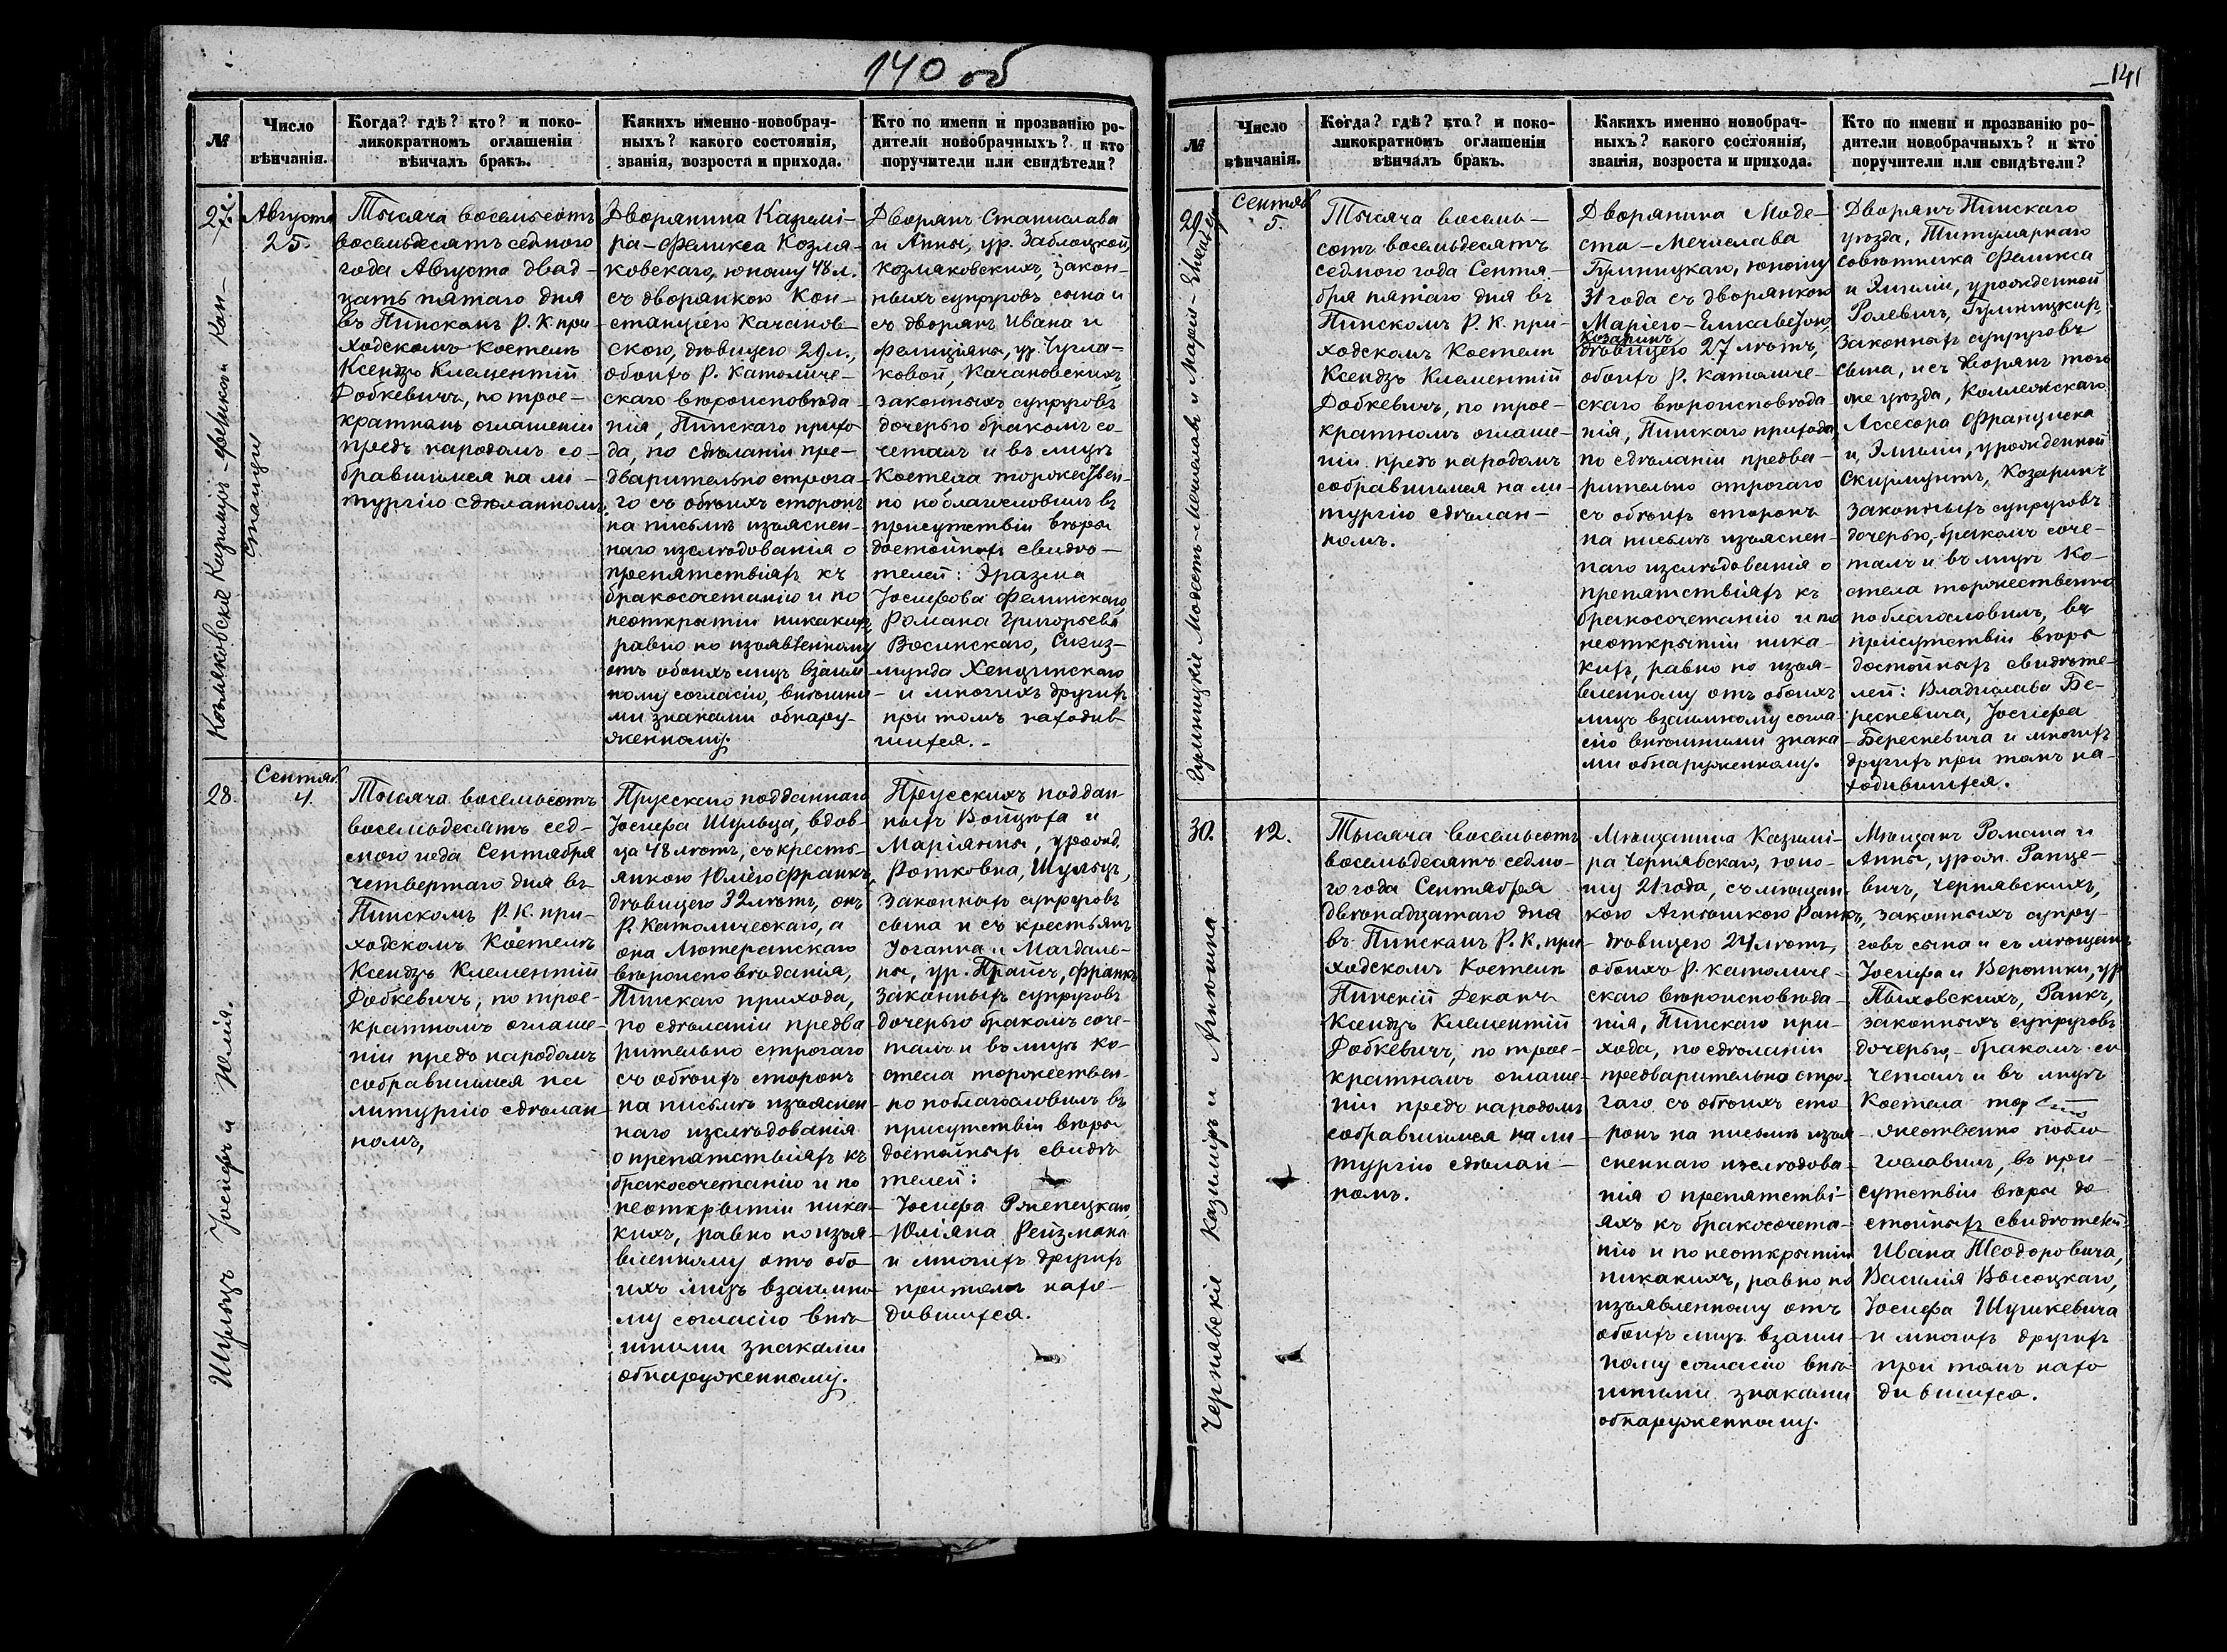 140 об
№
Число
вѣнчанія.
Когда? гдѣ? кто? и поко-
ликократномъ оглашеніи
вѣнчалъ бракъ.
Какихъ именно новобрач-
ныхъ? какого состоянія,
званія, возроста и прихода.
Кто по имени и прозванію ро-
дители новобрачныхъ? и кто
поручители или свидѣтели?
27.
Козляковскіе Казиміръ-Феликсъ и Кон-
станція
Августа
25.
Тысяча восемьсотъ
восемьдесятъ седмого
года Августа двад-
цать пятаго дня
въ Пинскомъ Р. К. при-
ходскомъ Костелѣ
Ксендзъ Клементій
Добкевичъ, по трое-
кратномъ оглашеніи
предъ народомъ со-
бравшимся на ли-
тургію сдѣланномъ,
Дворянина Казимі-
ра-Феликса Козля-
ковскаго, юношу 48 л.
съ дворянкою Кон-
станціею Качанов-
скою, дѣвицею 29 л.,
обоихъ Р. Католиче-
скаго вѣроисповѣда-
нія, Пинскаго прихо-
да, по сдѣланіи пре-
дварительно строга-
го съ обѣихъ сторонъ
на письмѣ изъяснен-
наго изслѣдованія о
препятствіяхъ къ
бракосочетанію и по
неоткрытіи никакихъ,
равно по изъявленному
отъ обоихъ лицъ взаим-
ному согласію, внѣшни-
ми знаками обнару-
женному.
Дворянъ Станислава
и Анны, ур. Заблоцкой,
Козляковскихъ, закон-
ныхъ супруговъ сына и
съ дворянъ Ивана и
Фелиціяны, ур. Чугла-
ковой, Качановскихъ,
законныхъ супруговъ
дочерью бракомъ со-
четалъ и въ лицѣ
Костела торжествен-
но поблагословилъ въ
присутствіи вѣры
достойныхъ свидѣ-
телей: Эразма
Іосифова Фелинскаго,
Романа Григорьева
Восинскаго, Сигиз-
мунда Хендзинскаго
и многихъ другихъ
при томъ находив-
шихся.
28.
Шульцъ Іосифъ и Юлія.
Сентяб.
4.
Тысяча восемьсотъ
восемьдесятъ сед-
мого года Сентября
четвертаго дня въ
Пинскомъ Р. К. при-
ходскомъ Костелѣ
Ксендзъ Клементій
Добкевичъ, по трое-
кратномъ оглаше-
ніи предъ народомъ
собравшимся на
литургію сдѣлан-
номъ,
Прусскаго подданнаго
Іосифа Шульца, вдов-
ца 48 лѣтъ, съ кресть-
янкою Юліею Франкъ,
дѣвицею 32 лѣтъ, онъ
Р. Католическаго, а
она Лютеранскаго
вѣроисповѣданія,
Пинскаго прихода,
по сдѣланіи предва
рительно строгаго
съ обѣихъ сторонъ
на письмѣ изъяснен-
наго изслѣдованія
о препятствіяхъ къ
бракосочетанію и по
неоткрытіи ника-
кихъ, равно по изъя-
вленному отъ обо-
ихъ лицъ взаимно-
му согласію внѣ-
шними знаками
обнаруженному.
Прусскихъ поддан
ныхъ Войцѣха и
Маріанны, урожд.
Роткова, Шульцъ,
законныхъ супруговъ
сына и съ крестьянъ
Іоганна и Магдале-
ны, ур. Прайсъ, Франкъ
законныхъ супруговъ
дочерью бракомъ соче-
талъ и въ лицѣ ко-
стела торжествен-
но поблагословилъ въ
присутствіи вѣры
достойныхъ свидѣ
телей:
Іосифа Ржепецкаго,
Юліяна Рейзмана
и многихъ другихъ
при томъ нахо-
дившихся.
141
№
Число
вѣнчанія.
Когда? гдѣ? кто? и поко-
ликократномъ оглашеніи
вѣнчалъ бракъ.
Какихъ именно новобрач-
ныхъ? какого состоянія,
званія, возроста и прихода.
Кто по имени и прозванію ро-
дители новобрачныхъ? и кто
поручители или свидѣтели?
29.
Сентяб
5.
Тысяча восемь-
сотъ восемьдесятъ
седмого года Сентя-
бря пятаго дня въ
Пинскомъ Р. К. при-
ходскомъ Костелѣ
Ксендзъ Клементій
Добкевичъ, по трое-
кратномъ оглаше-
ніи предъ народомъ
собравшимся на ли-
тургію сдѣлан-
номъ.
Дворянина Моде-
ста-Мечислава
Гриницкаго, юношу
31 года съ дворянкою
Маріею-Елисаветою
Козаринъ
дѣвицею 27 лѣтъ,
обоихъ Р. Католиче-
скаго вѣроисповѣда-
нія, Пинскаго прихода,
по сдѣланіи предва-
рительно строгаго
съ обѣихъ сторонъ
на письмѣ изъяснен-
наго изслѣдованія о
препятствіяхъ къ
бракосочетанію и по
неоткрытіи ника-
кихъ, равно по изъя-
вленному отъ обоихъ
лицъ взаимному согла-
сію внѣшними знака
ми обнаруженному.
Дворянъ Пинскаго
уѣзда, Титулярнаго
совѣтника Феликса
и Эмиліи, урожденной
Ролевичъ, Гриницкихъ,
законныхъ супруговъ
сына, и съ Дворянъ того
же уѣзда, Коллежскаго
Ассесора Франциска
и, Эмиліи, урожденной
Скирмунтъ, Козаринъ
законныхъ супруговъ
дочерью, бракомъ соче-
талъ и въ лицѣ Ко-
стела торжественно
поблагословилъ, въ
присутствіи вѣры
достойныхъ свидѣте-
лей: Владислава Бе-
ресневича, Іосифа
Бересневича и многихъ
другихъ при томъ на-
ходившихся.
30.
Чернявскіе Казиміръ и Агнѣшка
12.
Тысяча восемьсотъ
восемьдесятъ седмо-
го года Сентября
двѣнадцатаго дня
въ Пинскомъ Р. К. при-
ходскомъ Костелѣ
Пинскій Деканъ
Ксендзъ Клементій
Добкевичъ, по трое-
кратномъ оглаше-
ніи предъ народомъ
собравшимся на ли-
тургію сдѣлан-
номъ.
Мѣщанина Казимі-
ра Чернявскаго, юно-
шу 21 года, съ мѣщан-
кою Агнѣшкою Ранкъ,
дѣвицею 24 лѣтъ,
обоихъ Р. католиче-
скаго вѣроисповѣда-
нія, Пинскаго при-
хода, по сдѣланіи
предварительно стро-
гаго съ обѣихъ сто-
ронъ на письмѣ изъя-
сненнаго изслѣдова-
нія о препятстві-
яхъ къ бракосочета-
нію и по неоткрытіи
никакихъ, равно по
изъявленному отъ
обоихъ лицъ взаим-
ному согласію внѣ-
шними знаками
обнаруженному.
Мѣщанъ Романа и
Анны, урож. Ранце-
вичъ, Чернявскихъ,
законныхъ супру-
говъ сына и съ мѣщанъ
Іосифа и Вероники, ур
Пыховскихъ, Ранкъ,
законныхъ супруговъ
дочерью, бракомъ со
четалъ и въ лицѣ
Костела тор
жественно побла
гославилъ, въ при-
сутствіи вѣры до
стойныхъ свидѣтелей:
Ивана Теодоровича,
Василія Высоцкаго,
Іосифа Шушкевича
и многихъ другихъ
при томъ нахо
дившихся.